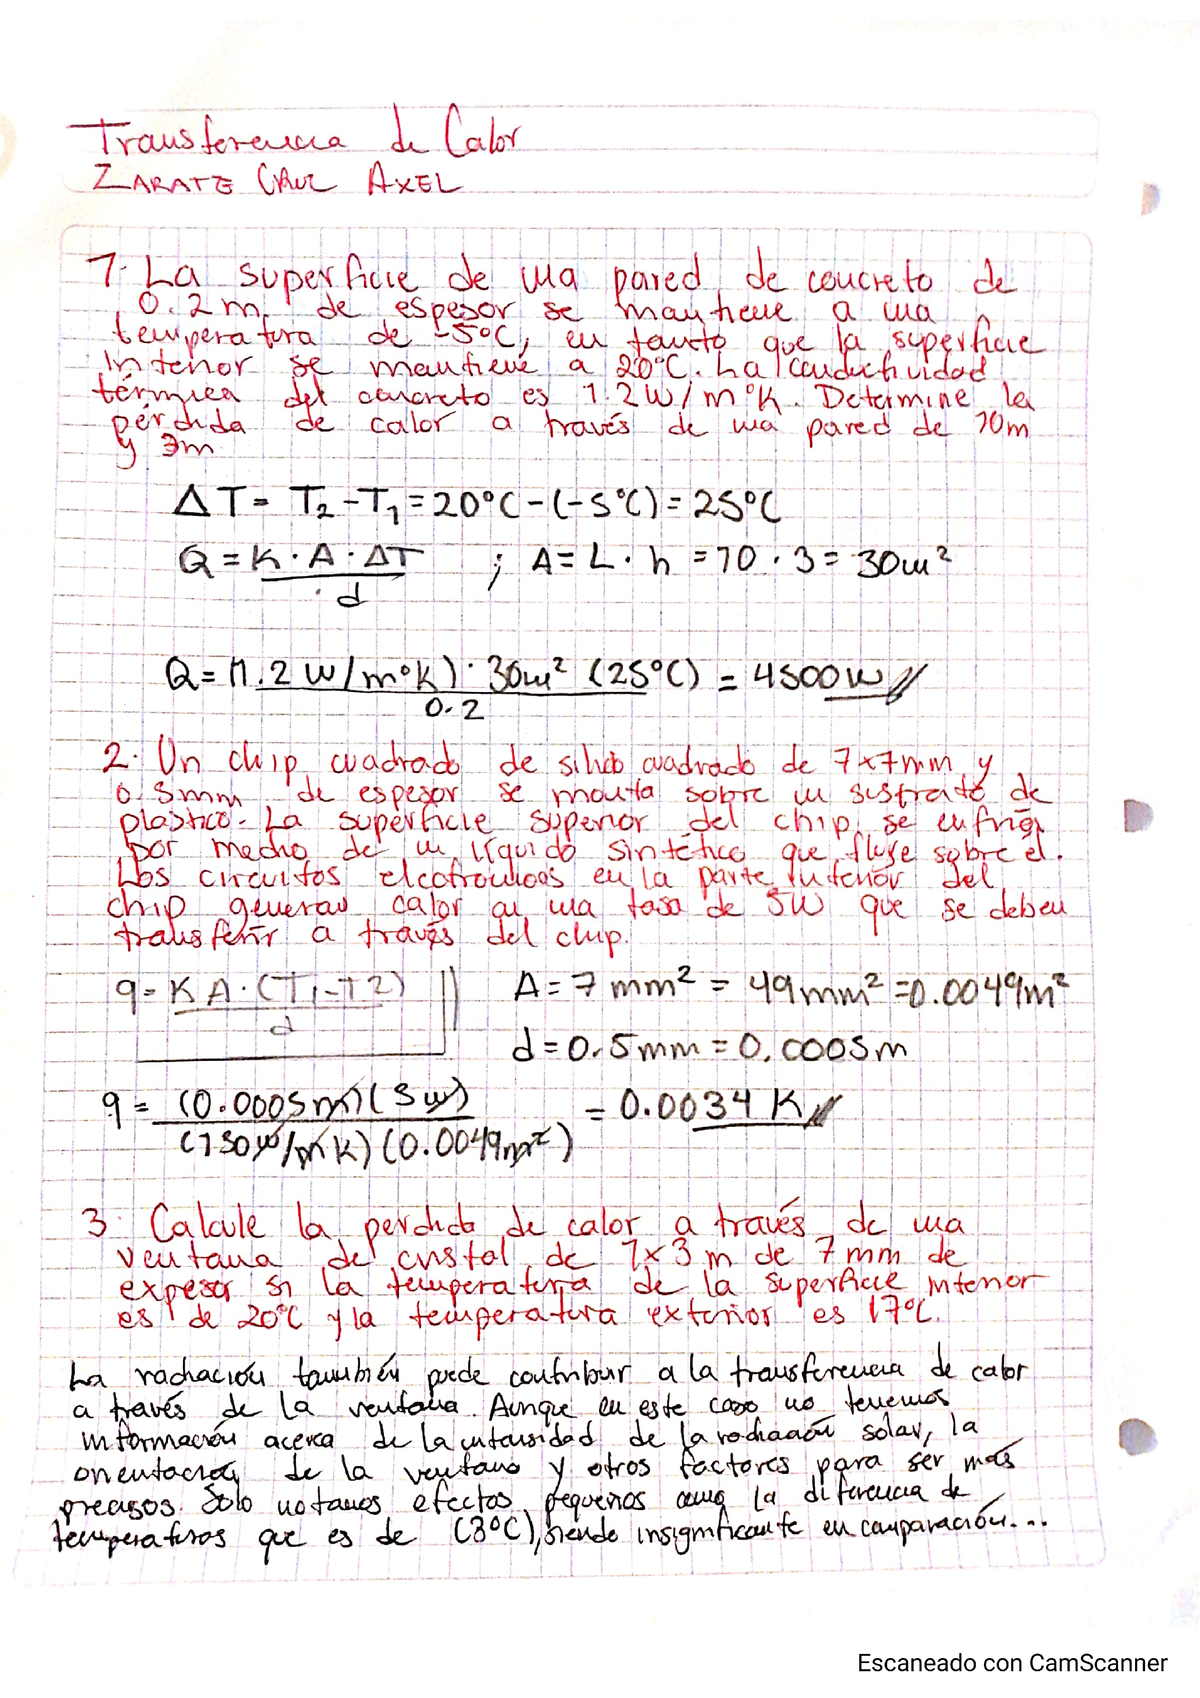 Transferencia de Calor
ZARATE CRUZ AXEL
1. La superficie de una pared de concreto de
0.2m de espesor se mantiene a una
temperatura de -5°C, en tanto que la superficie
interior se mantiene a 20°C. La conductividad
térmica del concreto es 1.2W/m°K. Determine la
pérdida de calor a través de una pared de 10m
y 3m
ΔT= T2-T1=20°C-(-5°C)=25°C
Q=K·A·ΔT/d ; A=L·h=10·3=30m²
Q=(1.2W/m°K)·30m²(25°C)/0.2=4500W
2. Un chip cuadrado de silicio cuadrado de 7x7mm y
0.5mm de espesor se monta sobre un sustrato de
plástico. La superficie superior del chip se enfría
por medio de un líquido sintético que fluye sobre él.
Los circuitos electrónicos en la parte inferior del
chip generan calor a una tasa de 5W que se deben
transferir a través del chip.
q=KA·(T1-T2)/d A=7mm²=49mm²=0.0049m²
d=0.5mm=0.0005m
q=(0.0005m)(5w)/(150w/mK)(0.0049m²)=0.0034K
3. Calcule la perdida de calor a través de una
ventana de cristal de 1x3m de 7mm de
expesor si la temperatura de la superficie interior
es de 20°C y la temperatura exterior es 17°C.
La radiación también puede contribuir a la transferencia de calor
a través de la ventana. Aunque en este caso no tenemos
información acerca de la intensidad de la radiación solar, la
orientación de la ventana y otros factores para ser más
precisos. Solo notamos efectos pequeños como la diferencia de
temperaturas que es de (3°C), siendo insignificante en comparación...
Escaneado con CamScanner